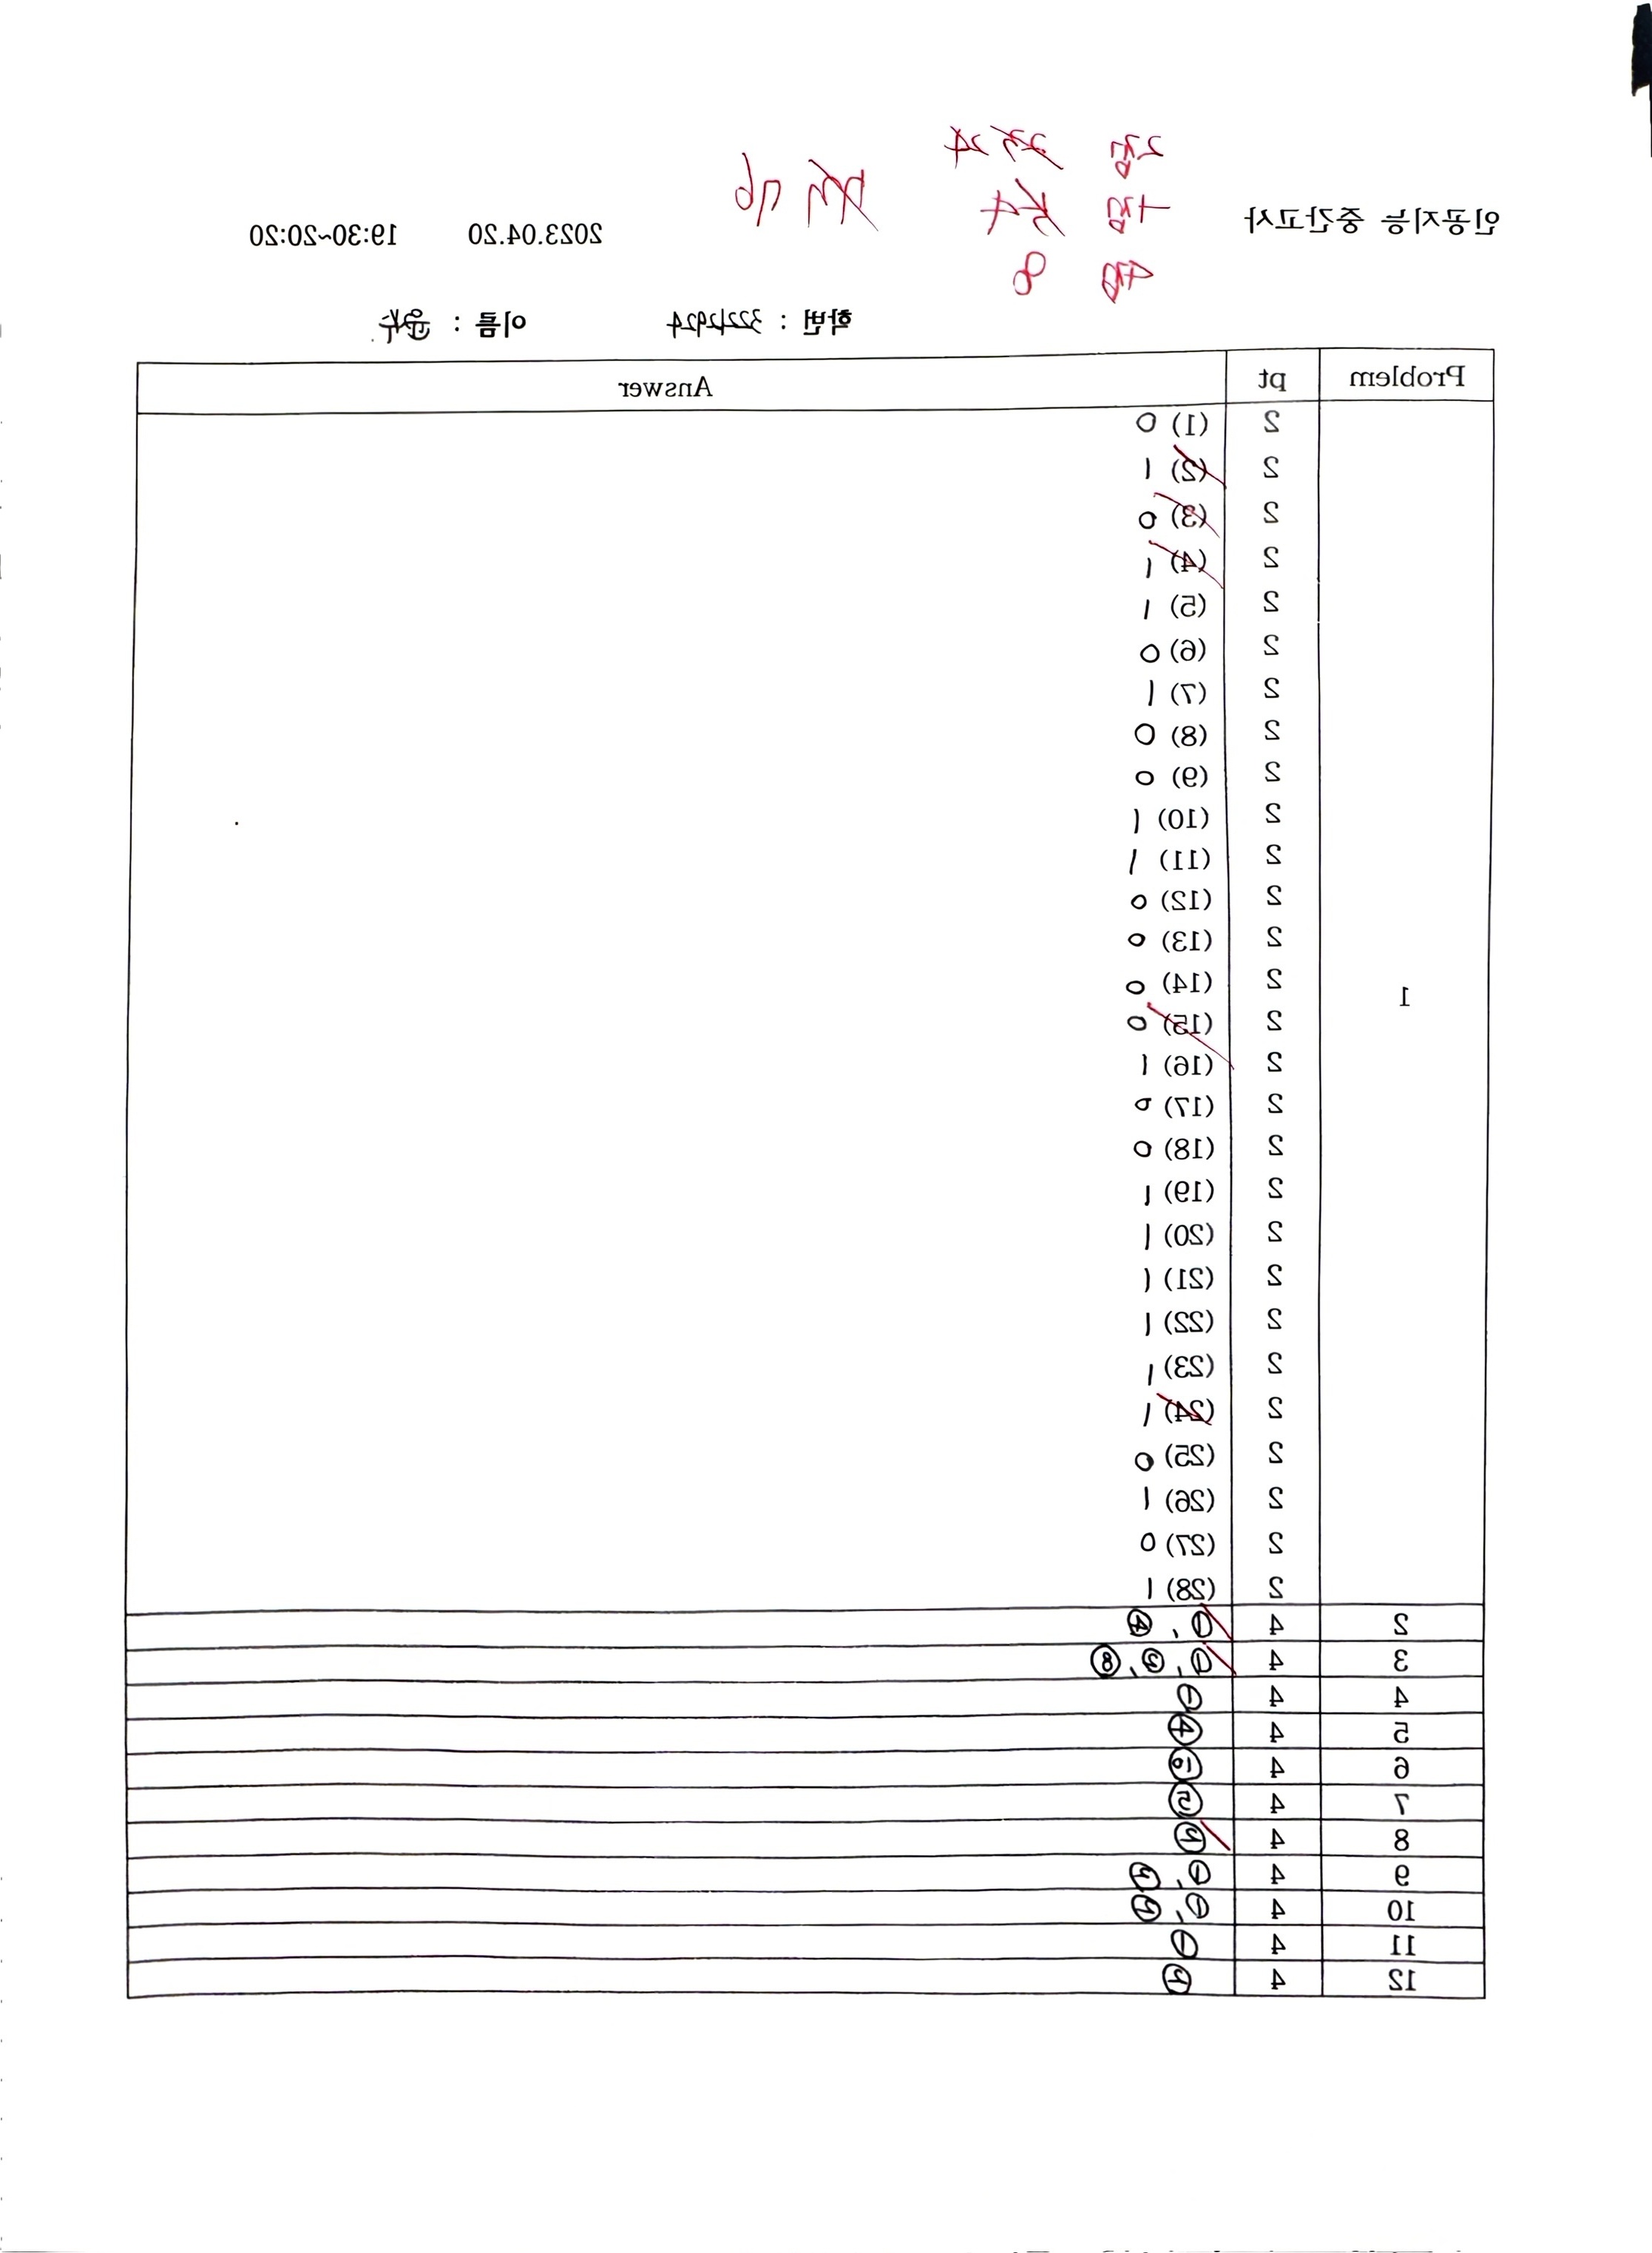 인공지능 중간고사 2023.04.20 19:30~20:20
2점 24
4점 4
점 8
76
학번 : 이름 :
Problem pt Answer
1
2 (1) 0
2 (2) 1
2 (3) 0
2 (4) 1
2 (5) 1
2 (6) 0
2 (7) 1
2 (8) 0
2 (9) 0
2 (10) 1
2 (11) 1
2 (12) 0
2 (13) 0
2 (14) 0
2 (15) 0
2 (16) 1
2 (17) 0
2 (18) 0
2 (19) 1
2 (20) 1
2 (21) 1
2 (22) 1
2 (23) 1
2 (24) 1
2 (25) 0
2 (26) 1
2 (27) 0
2 (28) 1
2 4 ①, ④
3 4 ①, ③, ⑧
4 4 ①
5 4 ④
6 4
7 4 ⑤
8 4 ④
9 4 ①, ④
10 4 ①, ④
11 4 ①
12 4 ④